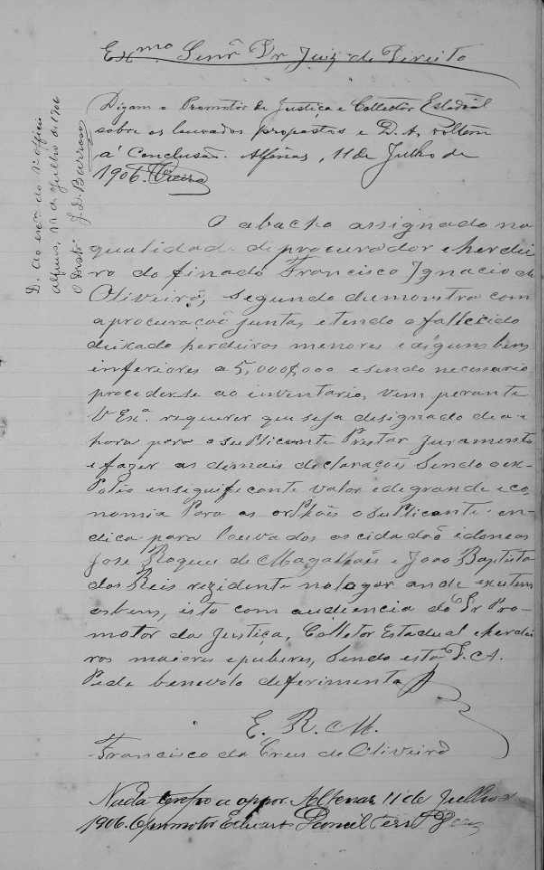 Exmo Senr Dr Juiz de Direito
Digam o Promotor de Justiça e Collector Estadual
sobre os louvados propostos e D. A. voltem
á Conclusão. Alfenas, 11 de Julho de
1906. Vieira
D. ao 1º officio
Alfenas, 11 de Julho de 1906
J. D. Barroso
O abacho assignado na
qualidade de procurador e herdei
ro do finado Francisco Ignacio de
Oliveira, segundo dumonstra com
a procuracaõ junta, e tendo o fallecido
deixado herdeiros menores e alguns bens
inferiores a 5,000$000 e sendo necessario
proceder-se ao inventario, vem perante
V Exª. requerer que seja designado dia e
hora para o suplicante Prestar juramento
e fazer as demais declarações Sendo o ex-
Polio insiguificante valor e de grande eco
nomia Para os orphãos o suplicante in-
dica para louvados os cidadõs idoneos
Jose Roque de Magalhães e Joao Baptista
dos Reis rezidente no logar onde existem
os bens, isto com audiencia do Sr Pro-
motor da Justiça, Colletor Estadual e herdei
ros maiores e puberes, Sendo esta D. A.
Pede benevolo deferimento
E. R. M.
Francisco da Crus de Oliveira
Nada tenho a oppor Alfenas 11 de Julho de
1906. O promotor